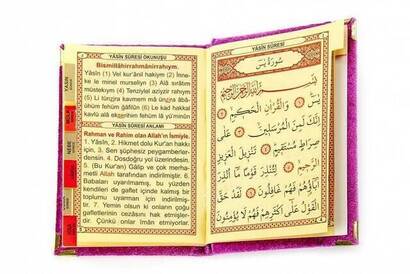 YÂSÎN SÛRESİ OKUNUŞU
Bismillâhirrahmânirrahıym.
Yâsîn (1) Vel kur'ânil hakiym (2) İnne-
ke le minel murseliyn (3) Alâ sırâtın
müstekiym (4) Tenziylel aziyzir rahıym
(5) Li tünzira kavmen mâ ünzira âbâ-
ühüm fehüm ğâfilûn (6) Le kad hakkal
kavlü alâ ekserihim fehüm lâ yü'minûn
YÂSÎN SÛRESİ ANLAMI
Rahman ve Rahim olan Allah'ın İsmiyle.
1. Yâsîn, 2. Hikmet dolu Kur'an hakkı
için, 3. Sen şüphesiz peygamberler-
densin. 4. Dosdoğru yol üzerindesin.
5. (Bu Kur'an) Gâlip ve çok merha-
metli Allah tarafından indirilmiştir. 6.
Babaları uyarılmamış, bu yüzden
kendileri de gaflet içinde kalmış bir
toplumu uyarman için indirilmiştir.
7. Yemin olsun ki onların çoğu
gafletlerinin cezasını hak etmişler-
dir. Çünkü onlar îman etmiyorlar.
YÂSÎN SÛRESİ
سُورَةُ يٰسٓ
بِسْمِ اللهِ الرَّحْمٰنِ الرَّحِيمِ
يٰسٓ ۝ وَالْقُرْاٰنِ الْحَكِيمِ ۝
اِنَّكَ لَمِنَ الْمُرْسَلِينَ ۝ عَلٰى
صِرَاطٍ مُسْتَقِيمٍ ۝ تَنْزِيلَ الْعَزِيزِ
الرَّحِيمِ ۝ لِتُنْذِرَ قَوْمًا مَٓا اُنْذِرَ
اٰبَٓاؤُهُمْ فَهُمْ غَافِلُونَ ۝ لَقَدْ حَقَّ
الْقَوْلُ عَلٰٓى اَكْثَرِهِمْ فَهُمْ لَا يُؤْمِنُونَ
YASİN
MÜLK
NEBE